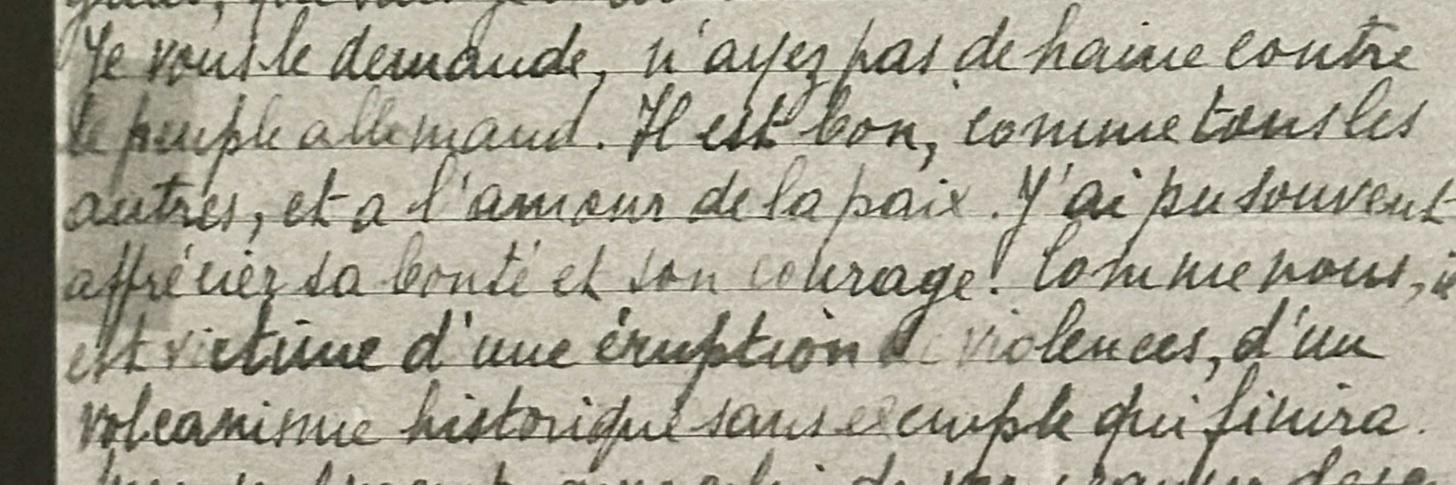 Je vous le demande, n'ayez pas de haine contre
le peuple allemand. Il est bon, comme tous les
autres, et a l'amour de la paix. J'ai pu souvent
apprécier sa bonté et son courage. Comme vous, il
est victime d'une éruption de violences, d'un
volcanisme historique sans exemple qui finira.